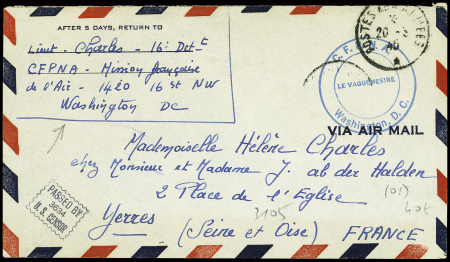 AFTER 5 DAYS, RETURN TO
Lieut - Charles - 16e Det-t
CFPNA - Mission française
de l'Air - 1420 16 St NW
Washington DC
POSTES AUX ARMEES
20-6
C.F.P.N.A.
LE VAGUEMESTRE
Washington, D.C.
VIA AIR MAIL
Mademoiselle Hélère Charles
chez Monsieur et Madame J. ab der Halden
2 Place de l'Eglise
(01)
3105
408
Yerres (Seine et Oise) FRANCE
PASSED BY
3634
U.S. CENSOR